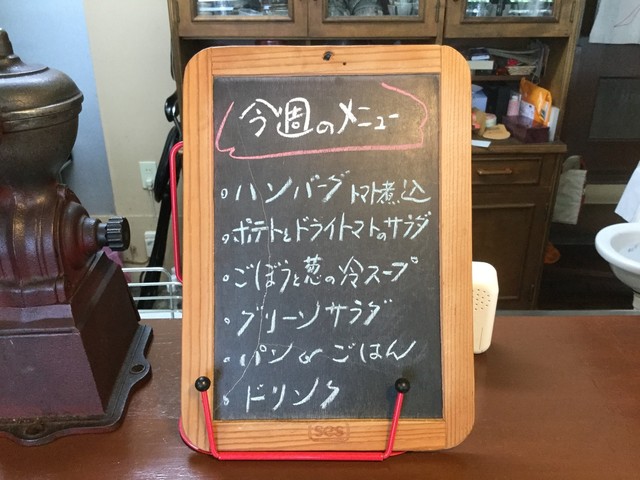 今週のメニュー
・ハンバーグ トマト煮込
・ポテトとドライトマトのサラダ
・ごぼうと葱の冷スープ
・グリーンサラダ
・パン or ごはん
・ドリンク
SCS